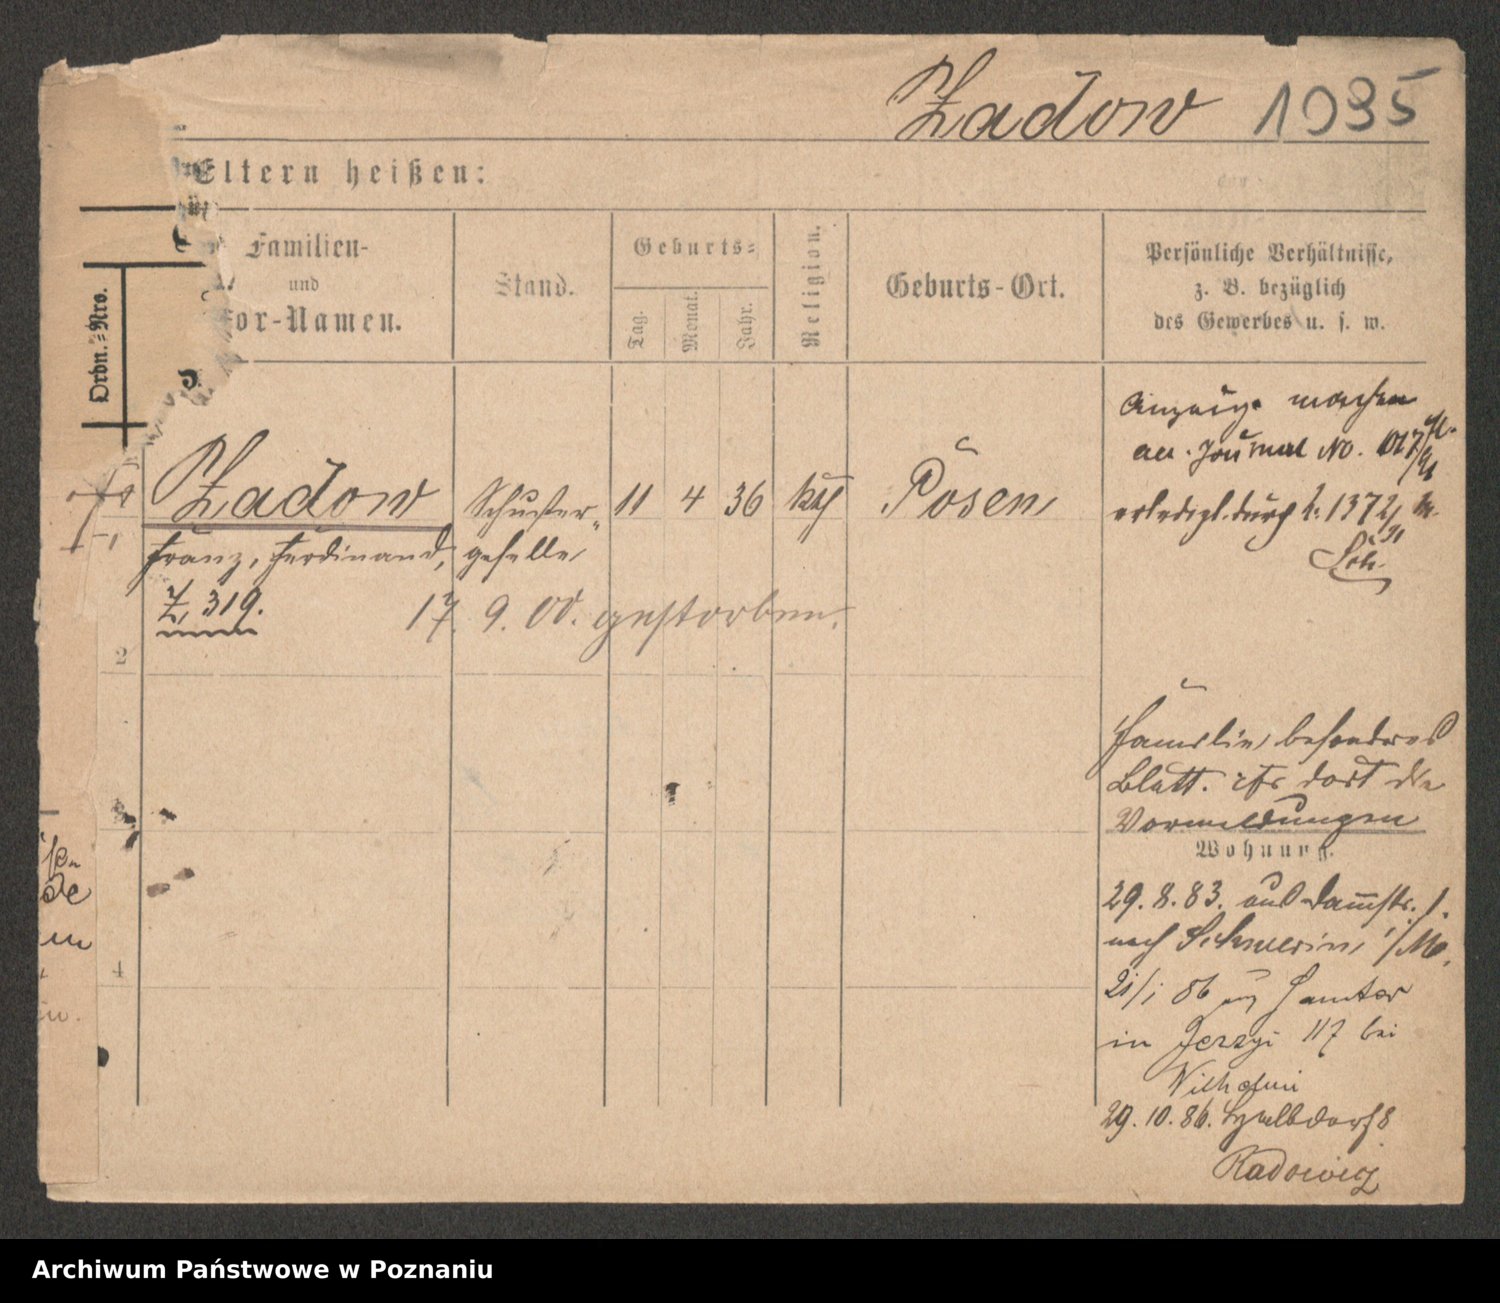 Zadow 1935
Eltern heißen:
Ordn.-Nro.
Familien-
und
Vor-Namen.
Stand.
Geburts-
Tag.
Monat.
Jahr.
Religion.
Geburts-Ort.
Persönliche Verhältnisse,
z. B. bezüglich
des Gewerbes u. s. w.
Zadow
Franz, Ferdinand,
Z, 319.
Schuster-
geselle
11 4 36 kth Posen
17. 9. 00. gestorben.
Anzeige machen
Journal No.
erledigt durch 1372/91
Familie besonderes
Blatt. dort die
Vormeldungen
Wohnung.
29. 8. 83. aus Dammstr. 1.
nach Schwerin
21/1 86 Samter
in Jerzyi 117 bei
Wilhelmi
29. 10. 86. 8
Radowicz
2
3
4
de
Archiwum Państwowe w Poznaniu